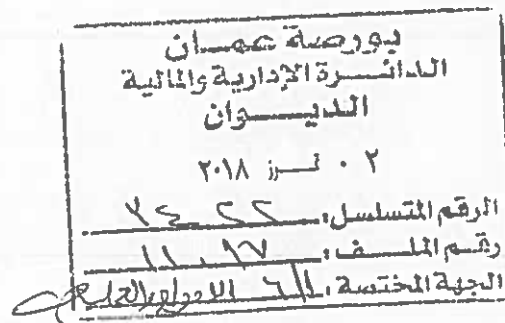 بورصة عمان
الدائرة الإدارية والمالية
الديوان
٠٢ تموز ٢٠١٨
الرقم المتسلسل:
رقم الملف:
الجهة المختصة: الادراج